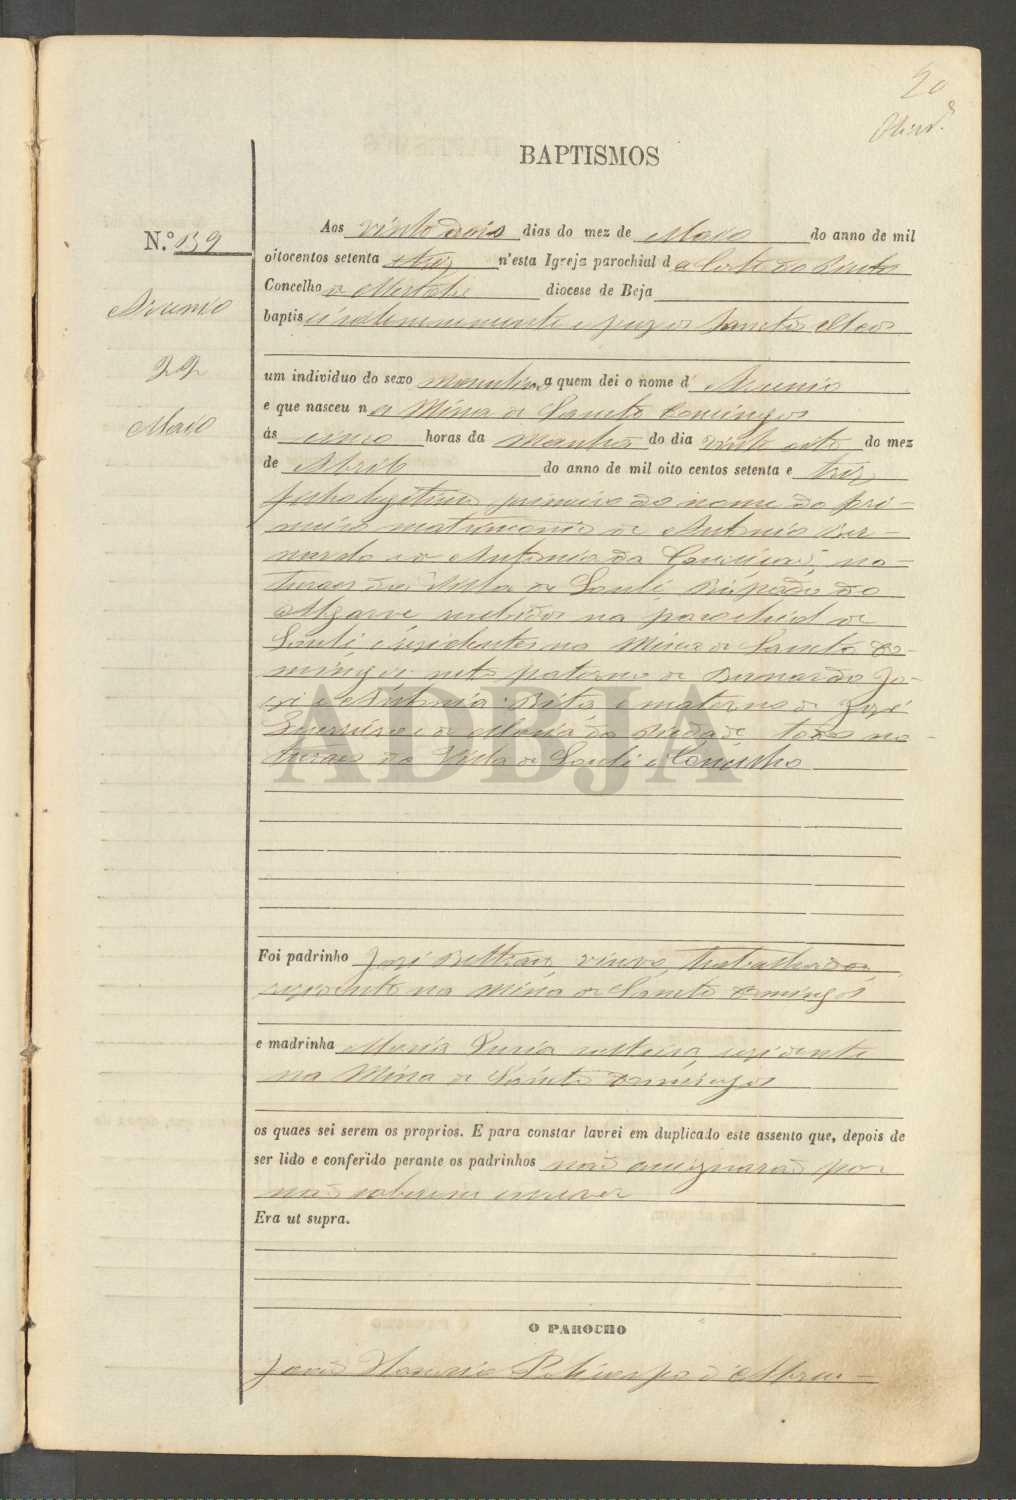 20
BAPTISMOS
N.º 139
Aos vinte dois dias do mez de Maio do anno de mil
oitocentos setenta e trez n'esta Igreja parochial da Corte do Pinto
Concelho de Mertola diocese de Beja
baptisei solemnemente e puz os Sanctos Oleos
22
Maio
um individuo do sexo masculino a quem dei o nome d
e que nasceu na Mina de Sancto Domingos
ás cinco horas da manhã do dia vinte oito do mez
de Abril do anno de mil oito centos setenta e trez
filho legitimo primeiro do nome do pri-
meiro matrimonio de Antonio Ber-
nardo e de Antonia da Conceição, na-
turaes da Villa de Loulé, Bispado do
Algarve recebidos na parochial de
Loulé, e rezidentes na Mina de Sancto Do-
mingos neto paterno de Bernardo Jo-
zé e Antonia Rita e materno de Jozé
Guerreiro e de Maria da Piedade, todos na-
turaes da Villa de Loulé e Concelho
ADBJA
Foi padrinho Jozé Beltrão, viuvo, trabalhador,
rezidente na Mina de Sancto Domingos
e madrinha Maria Luzia solteira, rezidente
na Mina de Sancto Domingos
os quaes sei serem os proprios. E para constar lavrei em duplicado este assento que, depois de
ser lido e conferido perante os padrinhos não assignarão por
não saberem escrever
Era ut supra.
O PAROCHO
João Januario Policarpo d'Abreu